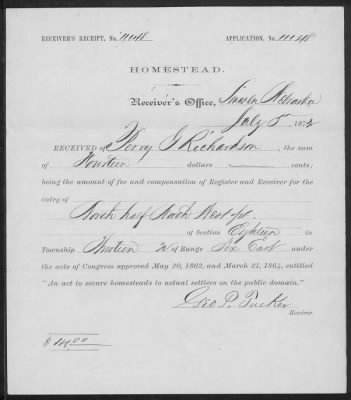 RECEIVER'S RECEIPT, No. 11148 APPLICATION, No. 11148
HOMESTEAD.
Receiver's Office, Lincoln Nebraska
July 5, 1872
RECEIVED of Perry G Richardson, the sum
of Fourteen dollars cents;
being the amount of fee and compensation of Register and Receiver for the
entry of
North half North West qr.
of Section Eighteen in
Township Thirteen N of Range Six East under
the acts of Congress approved May 20, 1862, and March 21, 1864, entitled
"An act to secure homesteads to actual settlers on the public domain."
Geo P. Tucker
Receiver.
$ 14.00